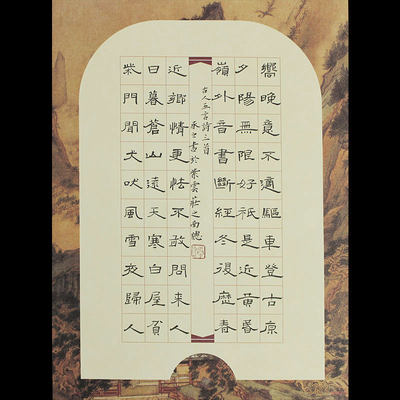 嚮晚意不適驅車登古原
夕陽無限好祇是近黃昏
嶺外音書斷經冬復歷春
古人五言詩三首
書於紫雲莊之南
近鄉情更怯不敢問來人
日暮蒼山遠天寒白屋貧
柴門聞犬吠風雪夜歸人